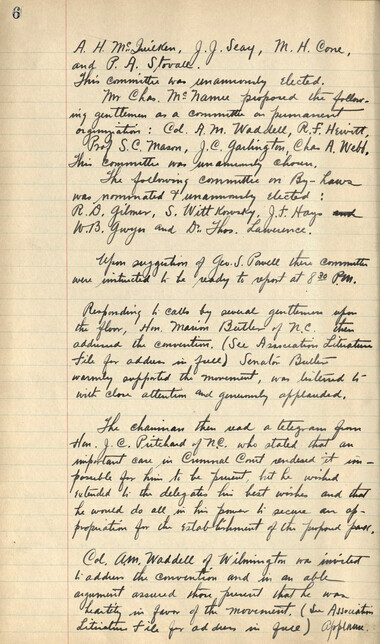 6
A. H. McQuilken, J. J. Seay, M. H. Cone,
and P. A. Stovall.
This committee was unanimously elected.
Mr Chas. McNamee proposed the follow-
ing gentlemen as a committee on permanent
organization: Col. A. M. Waddell, R. F. Hewitt,
Prof S. C. Mason, J. C. Garlington, Chas A. Webb.
This committee was unanimously chosen.
The following committee on By-Laws
was nominated & unanimously elected:
R. D. Gilmer, S. Wittkowsky, J. F. Hays and
W. B. Gwyn and Dr. Thos. Lawrence.
Upon suggestion of Geo. S. Powell these committees
were instructed to be ready to report at 8 30 P.M.
Responding to calls by several gentlemen upon
the floor, Hon. Marion Butler of N.C. then
addressed the convention. (See Association Literature
File for address in full) Senator Butler
warmly supported the movement, was listened to
with close attention and generously applauded.
The chairman then read a telegram from
Hon. J. C. Pritchard of N.C. who stated that an
important case in Criminal Court rendered it im-
possible for him to be present, but he wished
extended to the delegates his best wishes and that
he would do all in his power to secure an ap-
propriation for the establishment of the proposed park.
Col. A.M. Waddell of Wilmington was invited
to address the convention and in an able
argument assured those present that he was
heartily in favor of the movement. (See Association
Literature File for address in full) Applause.